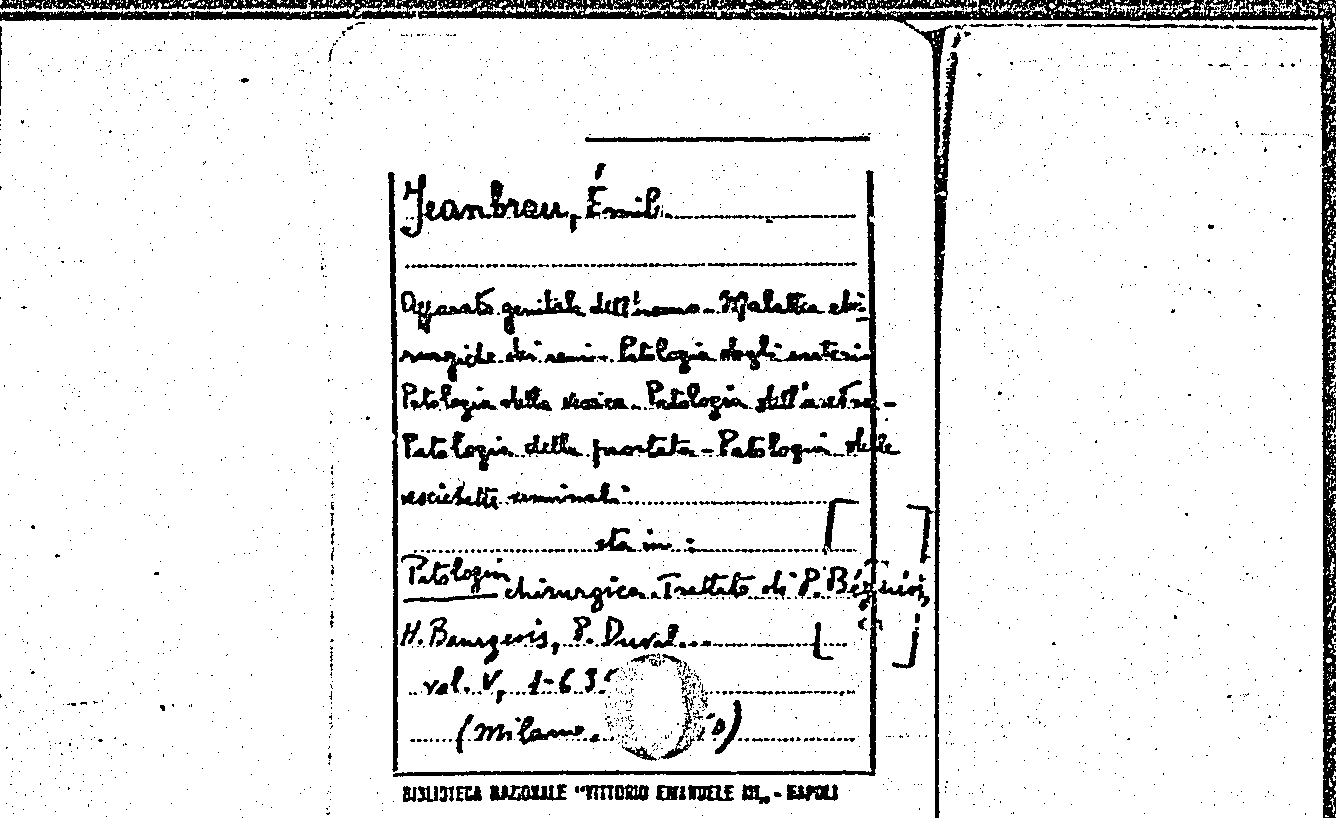 Jeanbrau, Émile
Apparato genitale dell'uomo - Malattie chi-
rurgiche dei reni - Patologia degli ureteri
Patologia della vescica - Patologia dell'uretra -
Patologia della prostata - Patologia delle
vescichette seminali
sta in :
Patologia chirurgica. Trattato di P. Bégouin,
H. Bourgeois, P. Duval...
vol. V, 1-63
(Milano.
BIBLIOTECA NAZIONALE "VITTORIO EMANUELE III„ - NAPOLI